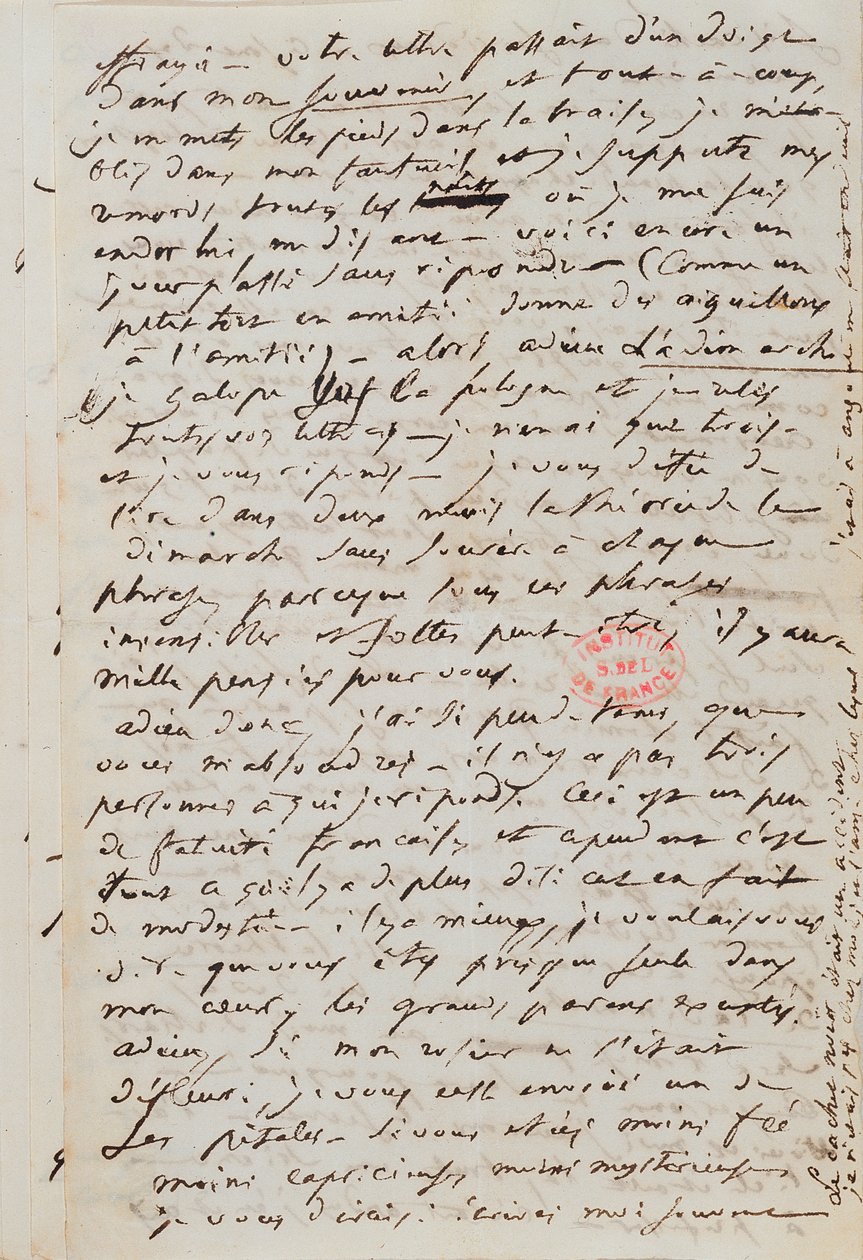 effrayé — votre lettre passait d'un doigt
dans mon souvenir, et tout-à-coup,
je me mets les pieds dans la braise, je m'éta-
blis dans mon fauteuil et je supporte mes
remords toutes les nuits où je me suis
endormi, me disant — voici encore un
jour passé sans répondre — (Comme un
petit tort en amitié donne des aiguillons
à l'amitié) — alors adieu
je galope vers la pologne et je relis
toutes vos lettres — je n'en ai que trois —
et je vous réponds — je vous défie de
lire dans deux mois la théorie de la
dimarche sans sourire à chaque
phrase, parceque sous ces phrases
insensibles et sottes peut-être, il y aura
mille pensées pour vous.
adieu donc, j'ai si peu de tems, que
vous m'absoudrez — il n'y a pas trois
personnes à qui je réponds. Ceci est un peu
de fatuité française, et cependant c'est
tout ce qu'il y a de plus délicat en fait
de modestie — il y a mieux, je voulais vous
dire que vous êtes presque seule dans
mon cœur, les grands parens exceptés.
adieu, si mon rosier ne s'était
défleuri, je vous eusse envoié un de
ses pétales — si vous étiez moins fée
moins capricieuse, moins mystérieuse
je vous dirais : écrivez moi souvent
Le cachet noir était un accident
je n'étais pas chez moi
j'étais à angoulême était en deuil
INSTITUT
S. DE L.
DE FRANCE